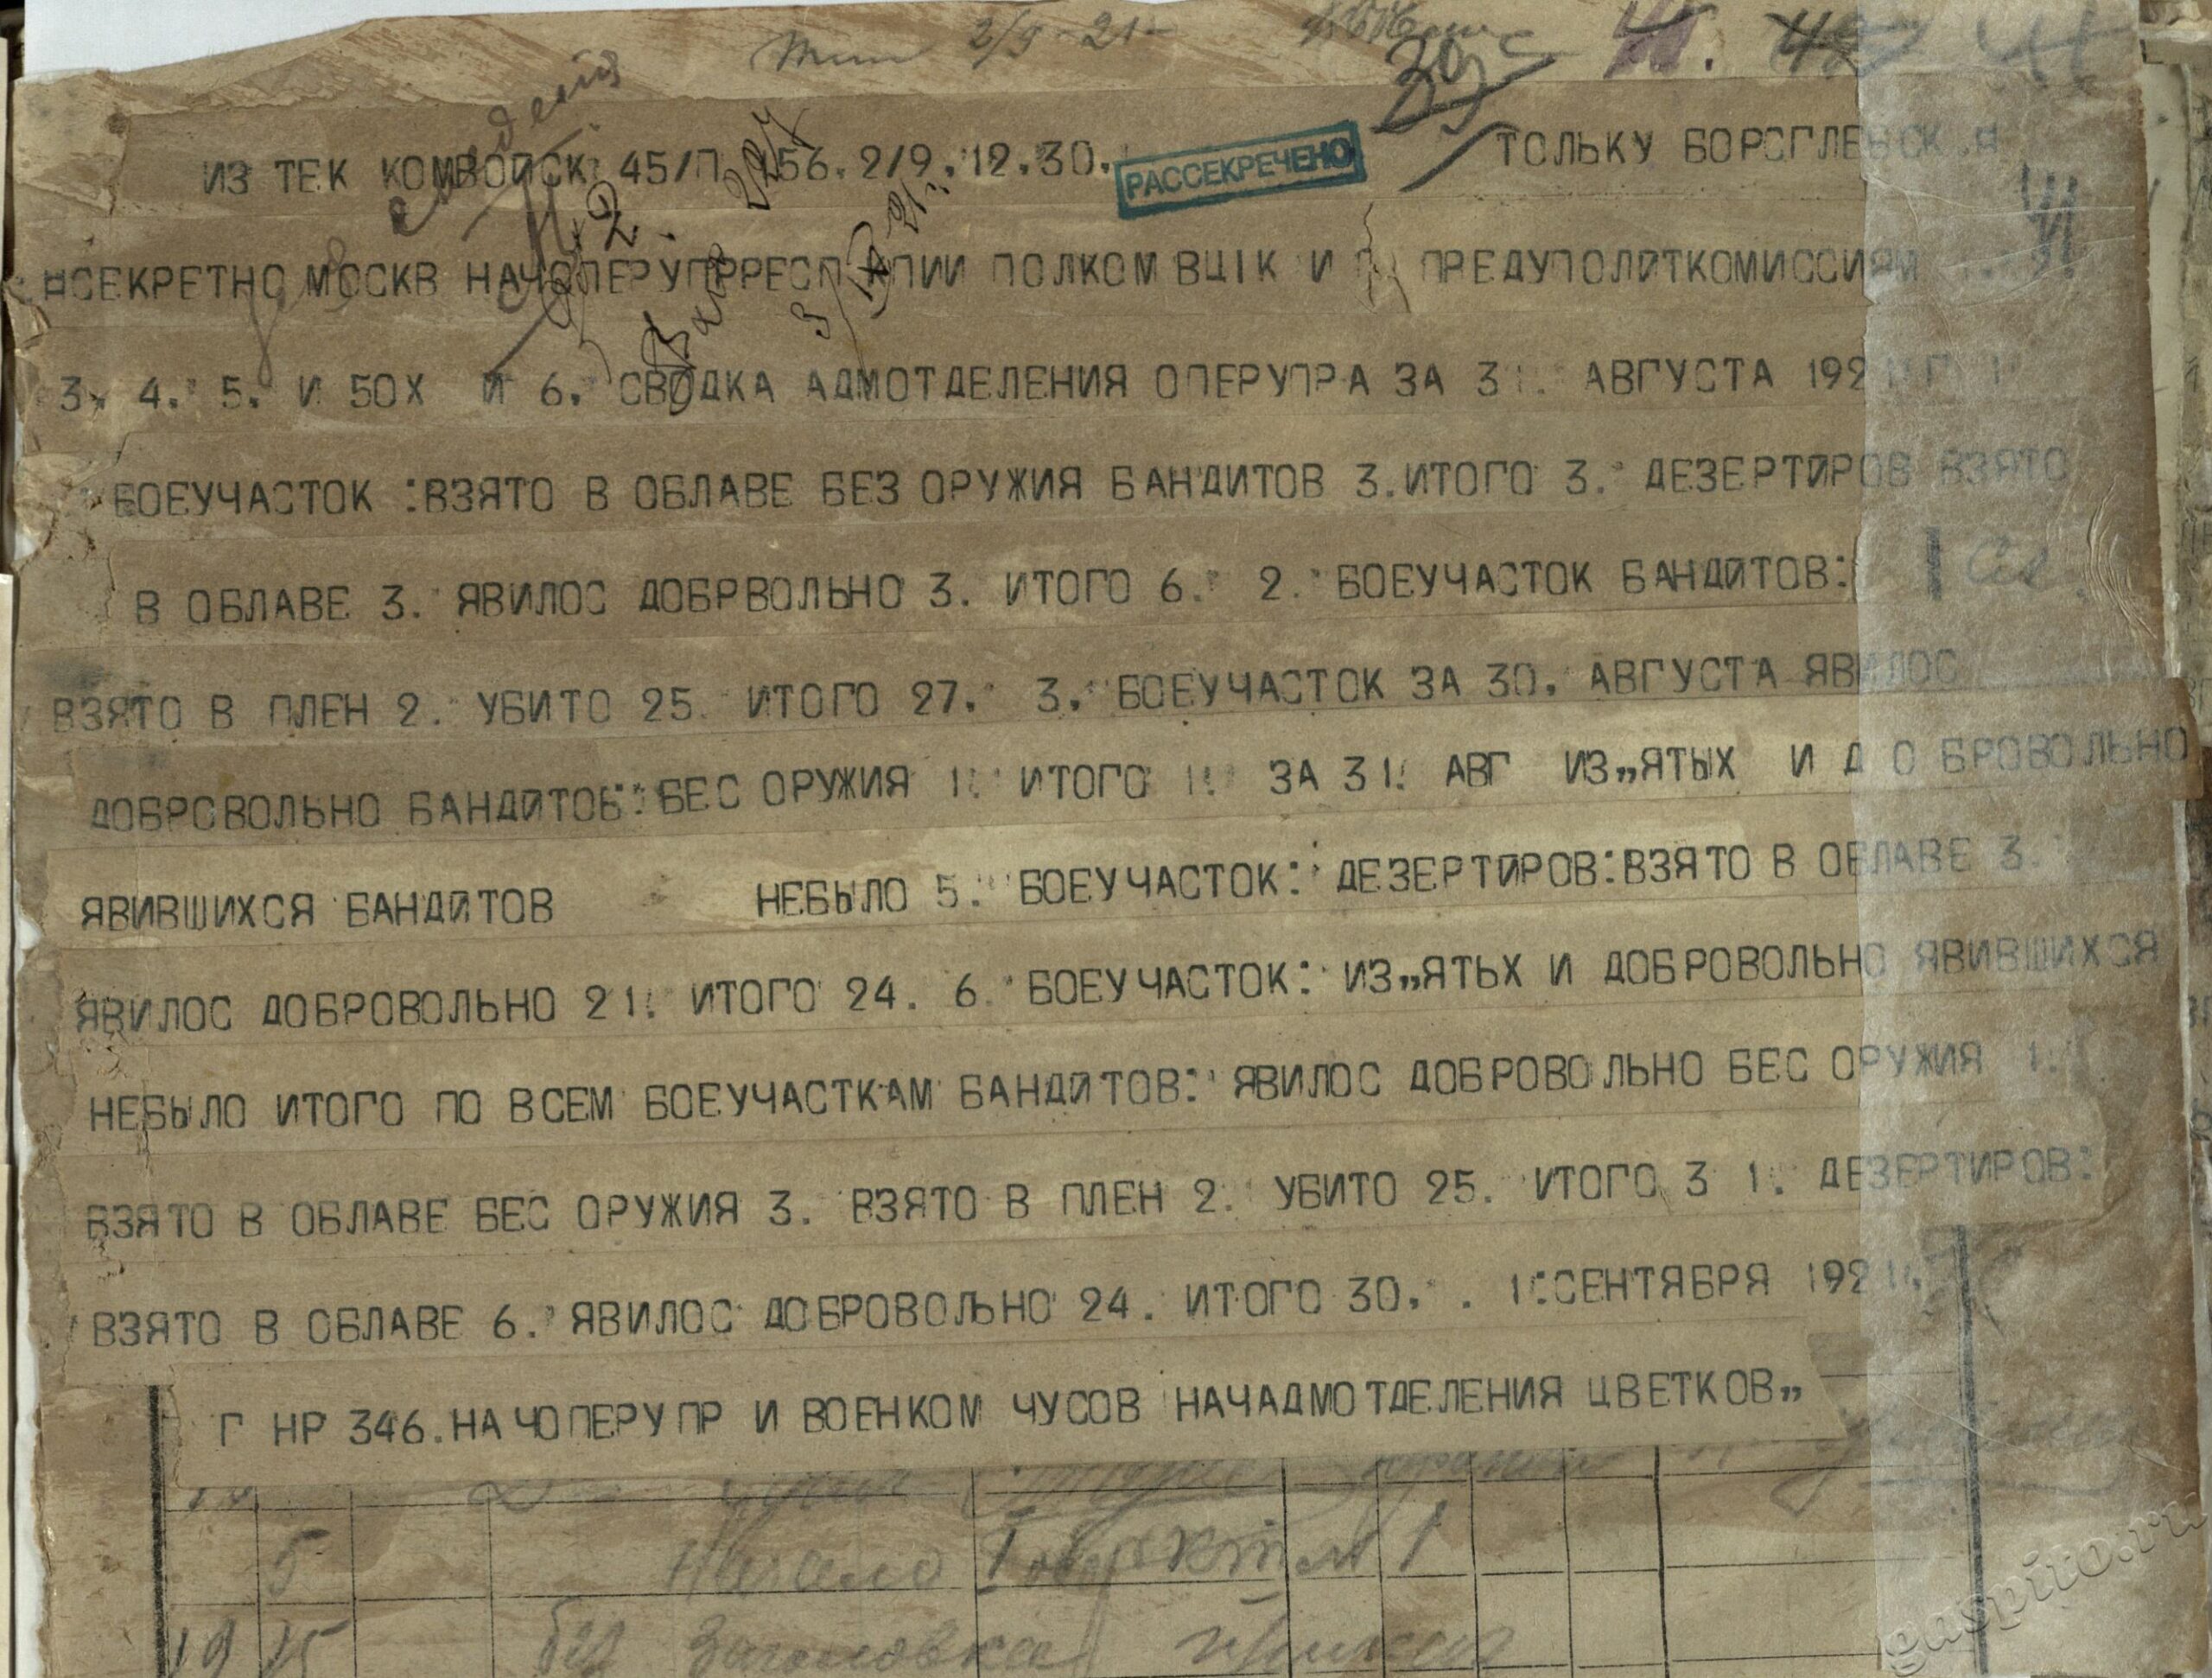 2/9 - 21
ИЗ ТЕК КОМВОЙСК 45/П 156. 2/9. 12.30. РАССЕКРЕЧЕНО ТОЛЬКУ БОРСГЛЕБСК
СЕКРЕТНО МОСКВ НАЧОПЕРУПРРЕСП ПОЛКОМ ВЦIК И ПРЕДУПОЛИТКОМИССИЯМ
3. 4. 5. И 50Х И 6. СВОДКА АДМОТДЕЛЕНИЯ ОПЕРУПРА ЗА 31. АВГУСТА 1921 Г 1
БОЕУЧАСТОК :ВЗЯТО В ОБЛАВЕ БЕЗ ОРУЖИЯ БАНДИТОВ 3.ИТОГО 3. ДЕЗЕРТИРОВ ВЗЯТО
В ОБЛАВЕ 3. ЯВИЛОС ДОБРВОЛЬНО 3. ИТОГО 6. 2. БОЕУЧАСТОК БАНДИТОВ:
ВЗЯТО В ПЛЕН 2. УБИТО 25. ИТОГО 27. 3. БОЕУЧАСТОК ЗА 30. АВГУСТА ЯВИЛОС
ДОБРОВОЛЬНО БАНДИТОВ: БЕС ОРУЖИЯ 1. ИТОГО 1. ЗА 31. АВГ ИЗ„ЯТЫХ И Д О БРОВОЛЬНО
ЯВИВШИХСЯ БАНДИТОВ НЕБЫЛО 5. БОЕУЧАСТОК: ДЕЗЕРТИРОВ:ВЗЯТО В ОБЛАВЕ 3
ЯВИЛОС ДОБРОВОЛЬНО 21. ИТОГО 24. 6. БОЕУЧАСТОК: ИЗ„ЯТЬХ И ДОБРОВОЛЬНО ЯВИВШИХСЯ
НЕБЫЛО ИТОГО ПО ВСЕМ БОЕУЧАСТКАМ БАНДИТОВ: ЯВИЛОС ДОБРОВОЛЬНО БЕС ОРУЖИЯ 1.
ВЗЯТО В ОБЛАВЕ БЕС ОРУЖИЯ 3. ВЗЯТО В ПЛЕН 2. УБИТО 25. ИТОГО 3 1. ДЕЗЕРТИРОВ:
ВЗЯТО В ОБЛАВЕ 6. ЯВИЛОС ДОБРОВОЛЬНО 24. ИТОГО 30. . 1:СЕНТЯБРЯ 1921.
Г НР 346.НАЧОПЕРУПР И ВОЕНКОМ ЧУСОВ НАЧАДМОТДЕЛЕНИЯ ЦВЕТКОВ„
5 Начало
19 15 без заголовка
gaspito.ru